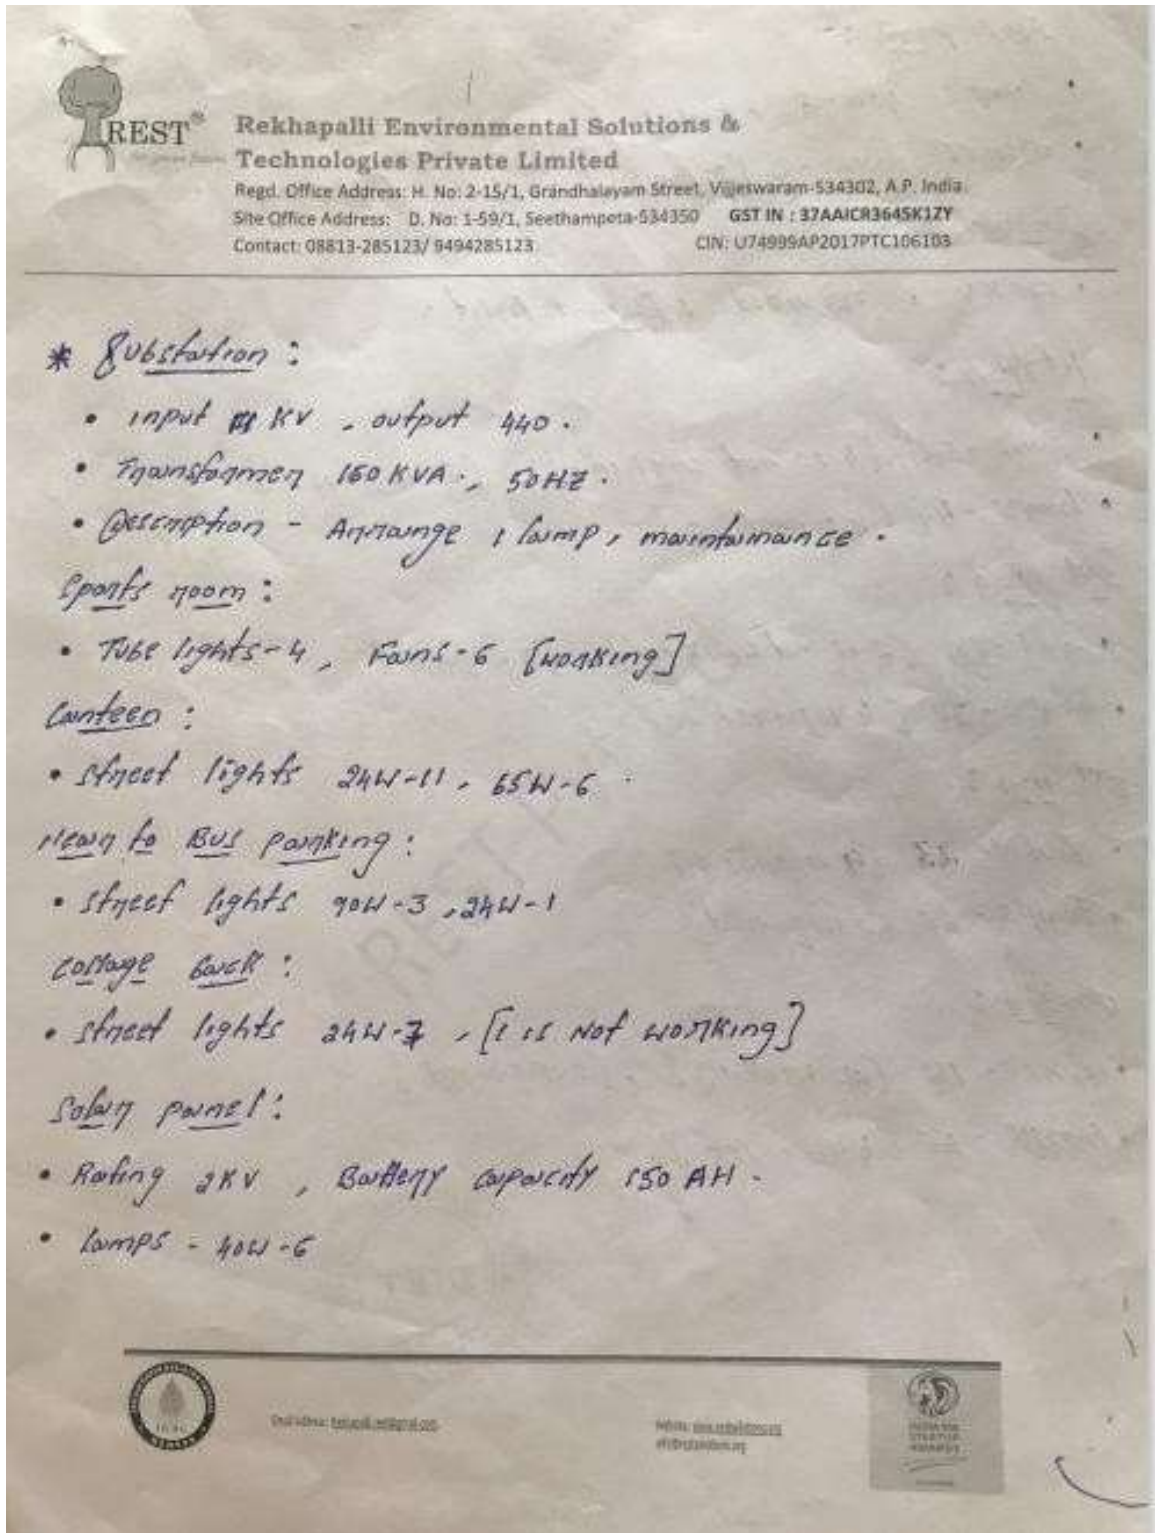 REST®
Rekhapalli Environmental Solutions &
Technologies Private Limited
Regd. Office Address: H. No: 2-15/1, Grandhalayam Street, Vijjeswaram-534302, A.P. India.
Site Office Address: D. No: 1-59/1, Seethampeta-534350 GST IN : 37AAICR3645K1ZY
Contact: 08813-285123/ 9494285123 CIN: U74999AP2017PTC106103
* Substation :
• input 11 KV, output 440.
• Transformer 160 KVA., 50HZ.
• Description - Arrange 1 lamp, maintainance.
Sports room :
• Tube lights-4, Fans-6 [working]
Canteen :
• street lights 24W-11, 65W-6
Near to Bus parking :
• street lights 90W-3, 24W-1
Collage back :
• street lights 24W-7, [1 is Not working]
Solar panel :
• Rating 2KV, Battery capacity 150 AH.
• lamps - 40W-6
INDIA 500
STARTUP
AWARDS